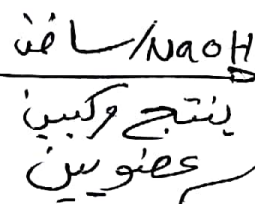 ساخن/NaOH
ينتج مركبين
عضويين